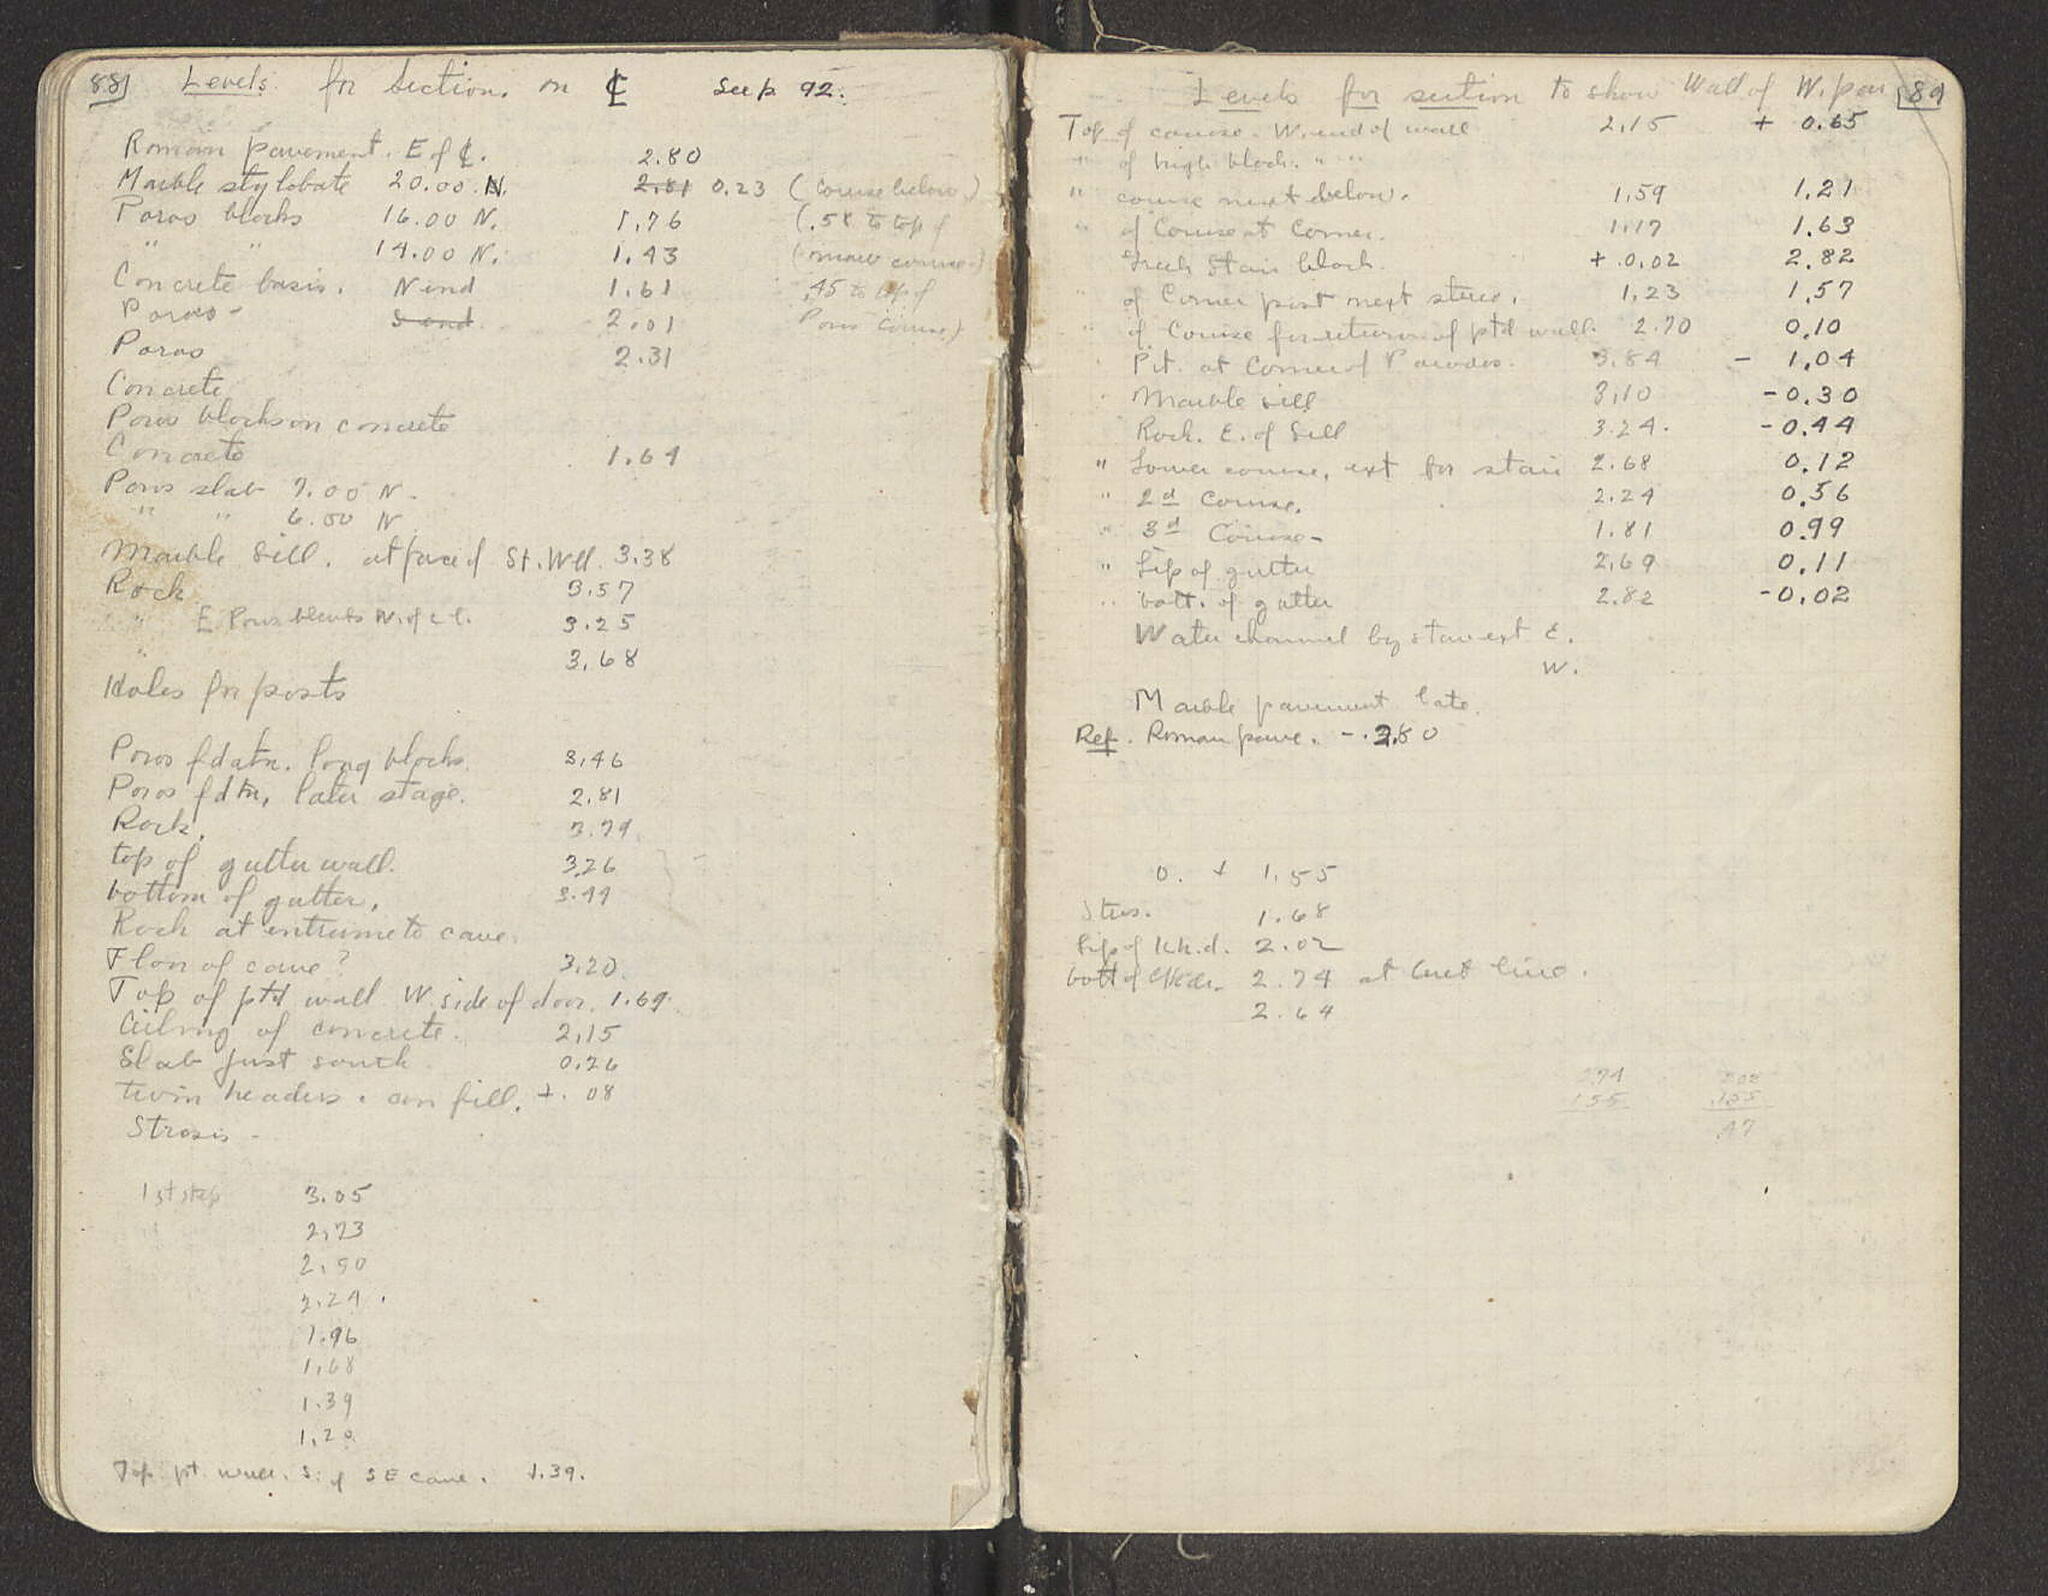 88] Levels for Section. on ℄ See p 92.
Roman pavement. E of ℄. 2.80
Marble stylobate 20.00 N. 2.81 0.23 (course below.)
Poros blocks 16.00 N. 1.76 (.58 to top of
" " 14.00 N. 1.43 course.)
Concrete basis. N end 1.61 .45 to top of
Poros - S end 2.01 Poros course)
Poros 2.31
Concrete
Poros blocks on concrete
Concrete 1.64
Poros slab 7.00 N.
" " 6.00 N
Marble Sill. at face of St. Wll. 3.38
Rock 3.57
" E Poros blocks N. of 3.25
" 3.68
Holes for posts
Poros fdatn. long blocks. 3.46
Poros fdtn, later stage. 2.81
Rock. 3.79
top of gutter wall. 3.26
bottom of gutter. 3.44
Rock at entrance to cave.
Floor of cave? 3.20
Top of ptd wall W. side of door. 1.69
Ceiling of concrete. 2.15
Slab just south 0.26
twin headers. on fill. +.08
Strosis -
1st step 3.05
2.73
2.50
2.24.
1.96
1.68
1.39
1.20
Top pt. wall. S. of SE cave. 1.39.
Levels for section to show Wall of W. par [89
Top of course. W. end of wall 2.15 + 0.65
" of high block. " "
" course next below. 1.59 1.21
" of Course at Corner. 1.17 1.63
Greek Stair block. +.0.02 2.82
" of Corner post next steric. 1.23 1.57
" of Course for return of ptd wall. 2.70 0.10
Pit. at Corner of Parodos. 3.84 - 1.04
Marble sill 3.10 -0.30
Rock. E. of Sill 3.24. -0.44
" Lower course, ext for stair 2.68 0.12
" 2d Course. 2.24 0.56
" 3d Course - 1.81 0.99
" Lip of gutter 2.69 0.11
" bott. of gutter 2.82 -0.02
Water channel by E.
W.
Marble pavement late.
Ref. Roman pave. -.2.80
0. + 1.55
1.68
Lip of 2.02
bott of 2.74 at line.
2.64
2.74 2.02
1.55 1.55
.47